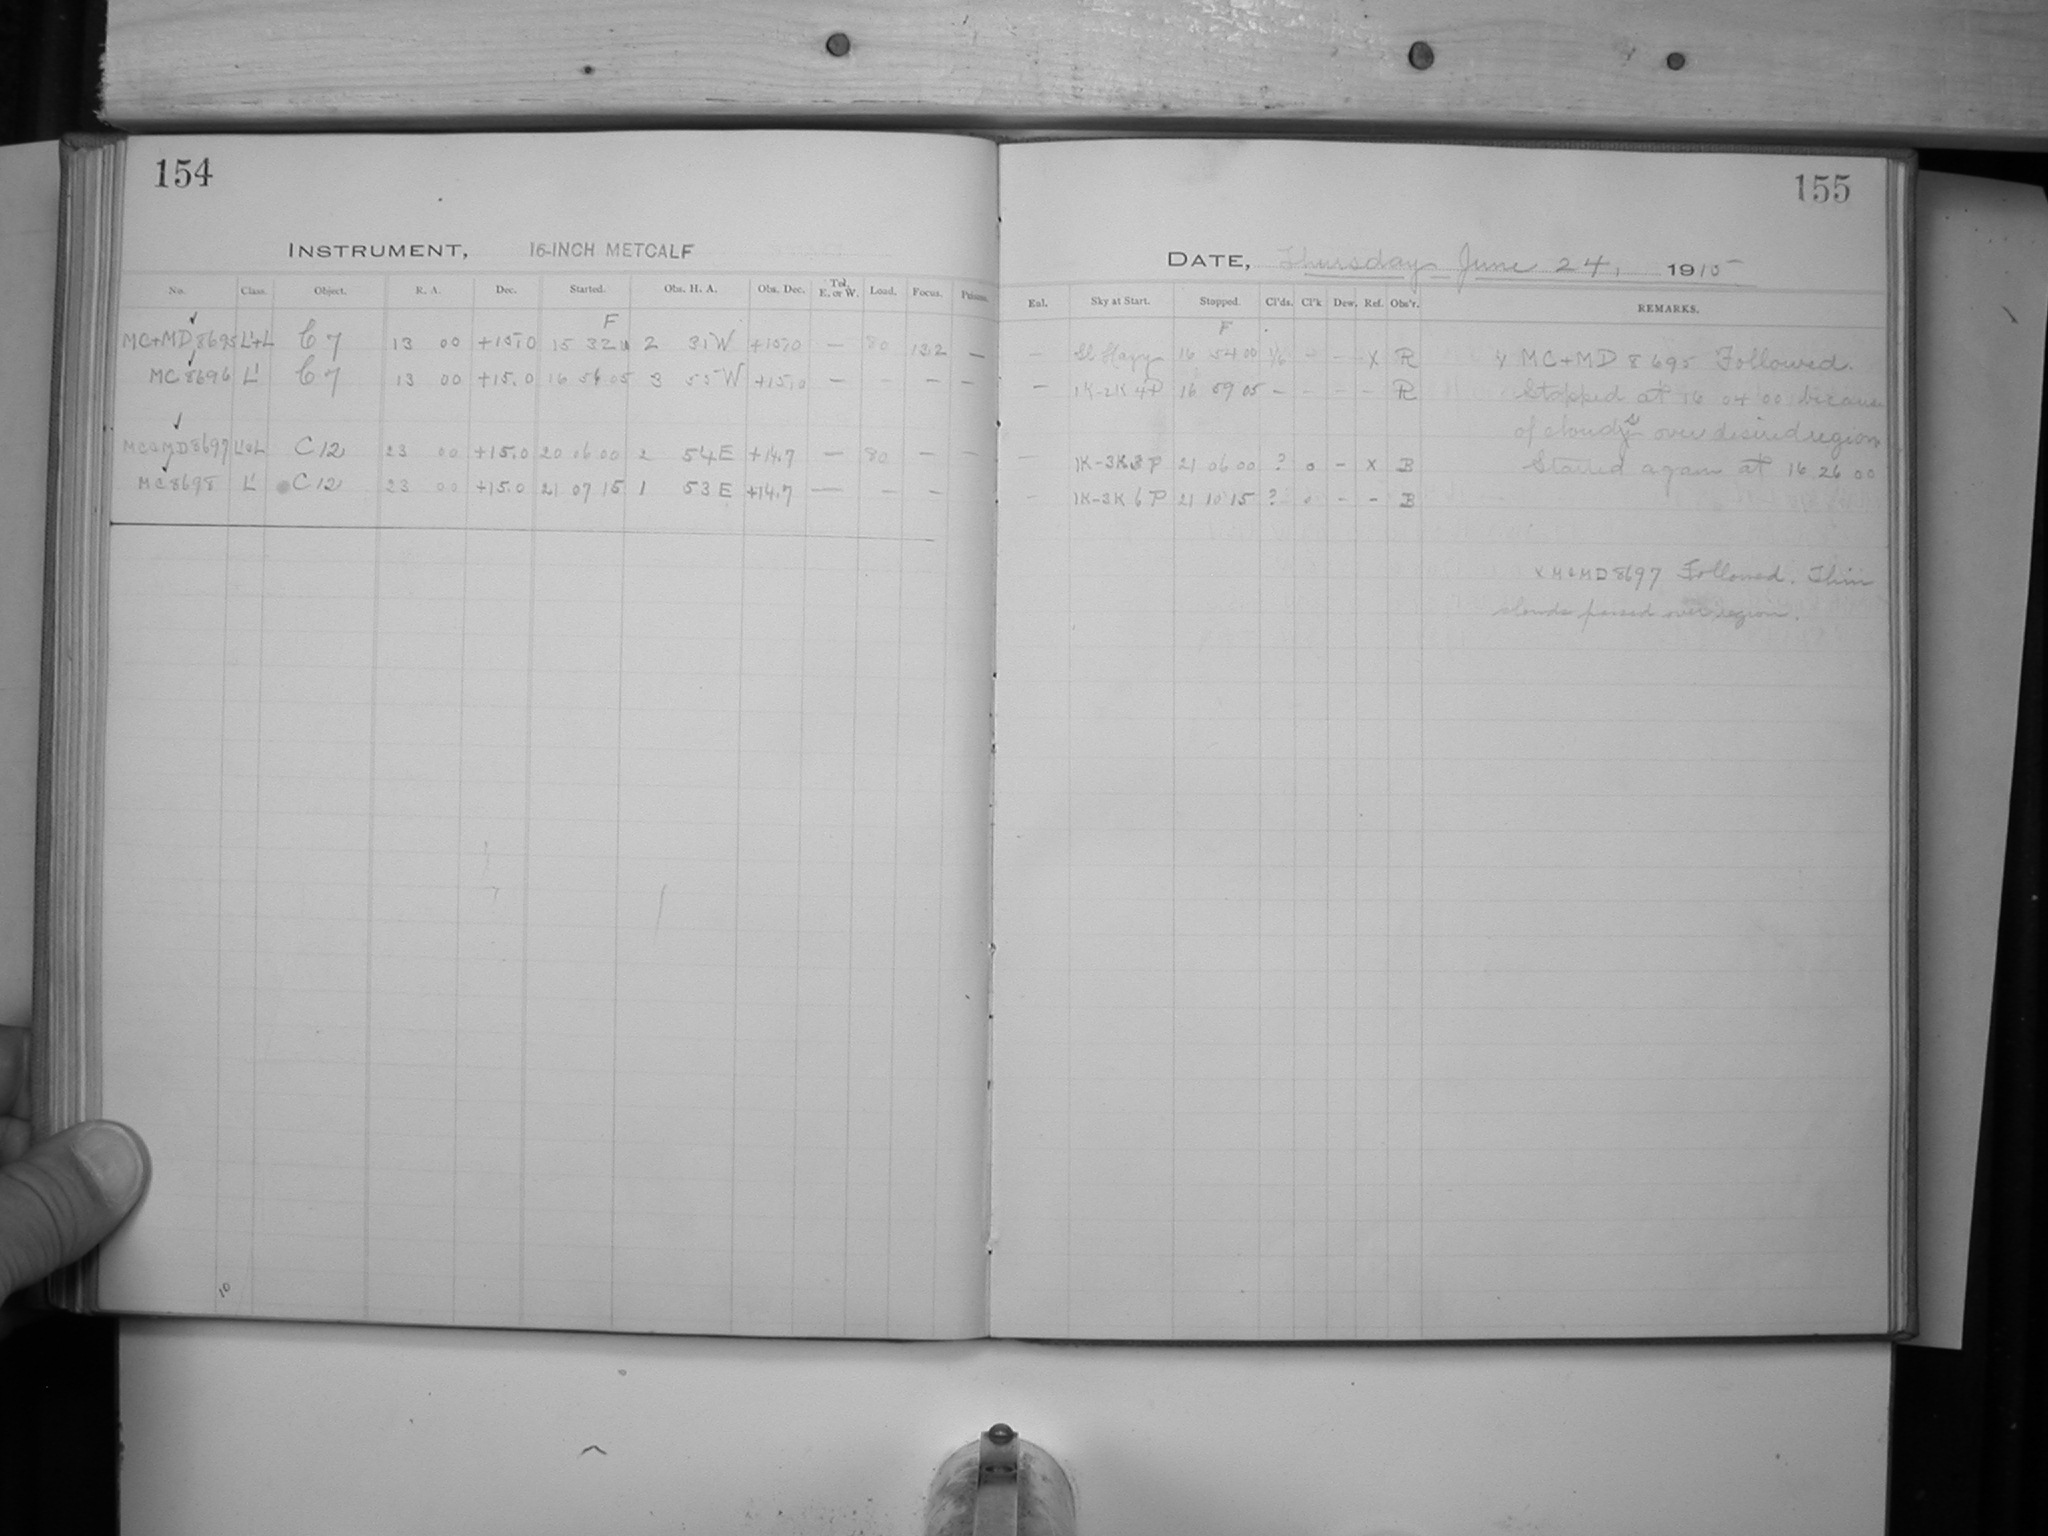 154
INSTRUMENT, 16-INCH METCALF
No. Class. Object. R. A. Dec. Started. Obs. H. A. Obs. Dec. Tel. E. or W. Load. Focus. Prisms.
F
MC+MD 8695 L'+L C 7 13 00 +15.0 15 32 2 31 W +15.0 — 80 13.2 —
MC 8696 L' C 7 13 00 +15.0 16 56 05 3 55 W +15.0 — - — —
MC&MD 8697 L'&L C 12 23 00 +15.0 20 06 00 2 54 E +14.7 — 80 — —
MC 8698 L' C 12 23 00 +15.0 21 07 15 1 53 E +14.7 — - —
10
155
DATE, Thursday June 24, 1915
Eul. Sky at Start. Stopped. Cl'ds. Cl'k Dew. Ref. Obs'r. REMARKS.
F
— Sl. Hazy 16 54 00 1/6 - - X R x MC+MD 8695 Followed.
— 1K-2K 4P 16 59 05 - - - - R Stopped at 16 04 00 because
of clouds over desired region
— 1K-3K 3 P 21 06 00 ? 0 - X B Started again at 16 26 00
— 1K-3K 6 P 21 10 15 ? 0 - - B
x MC&MD 8697 Followed. Thin
clouds passed over region.